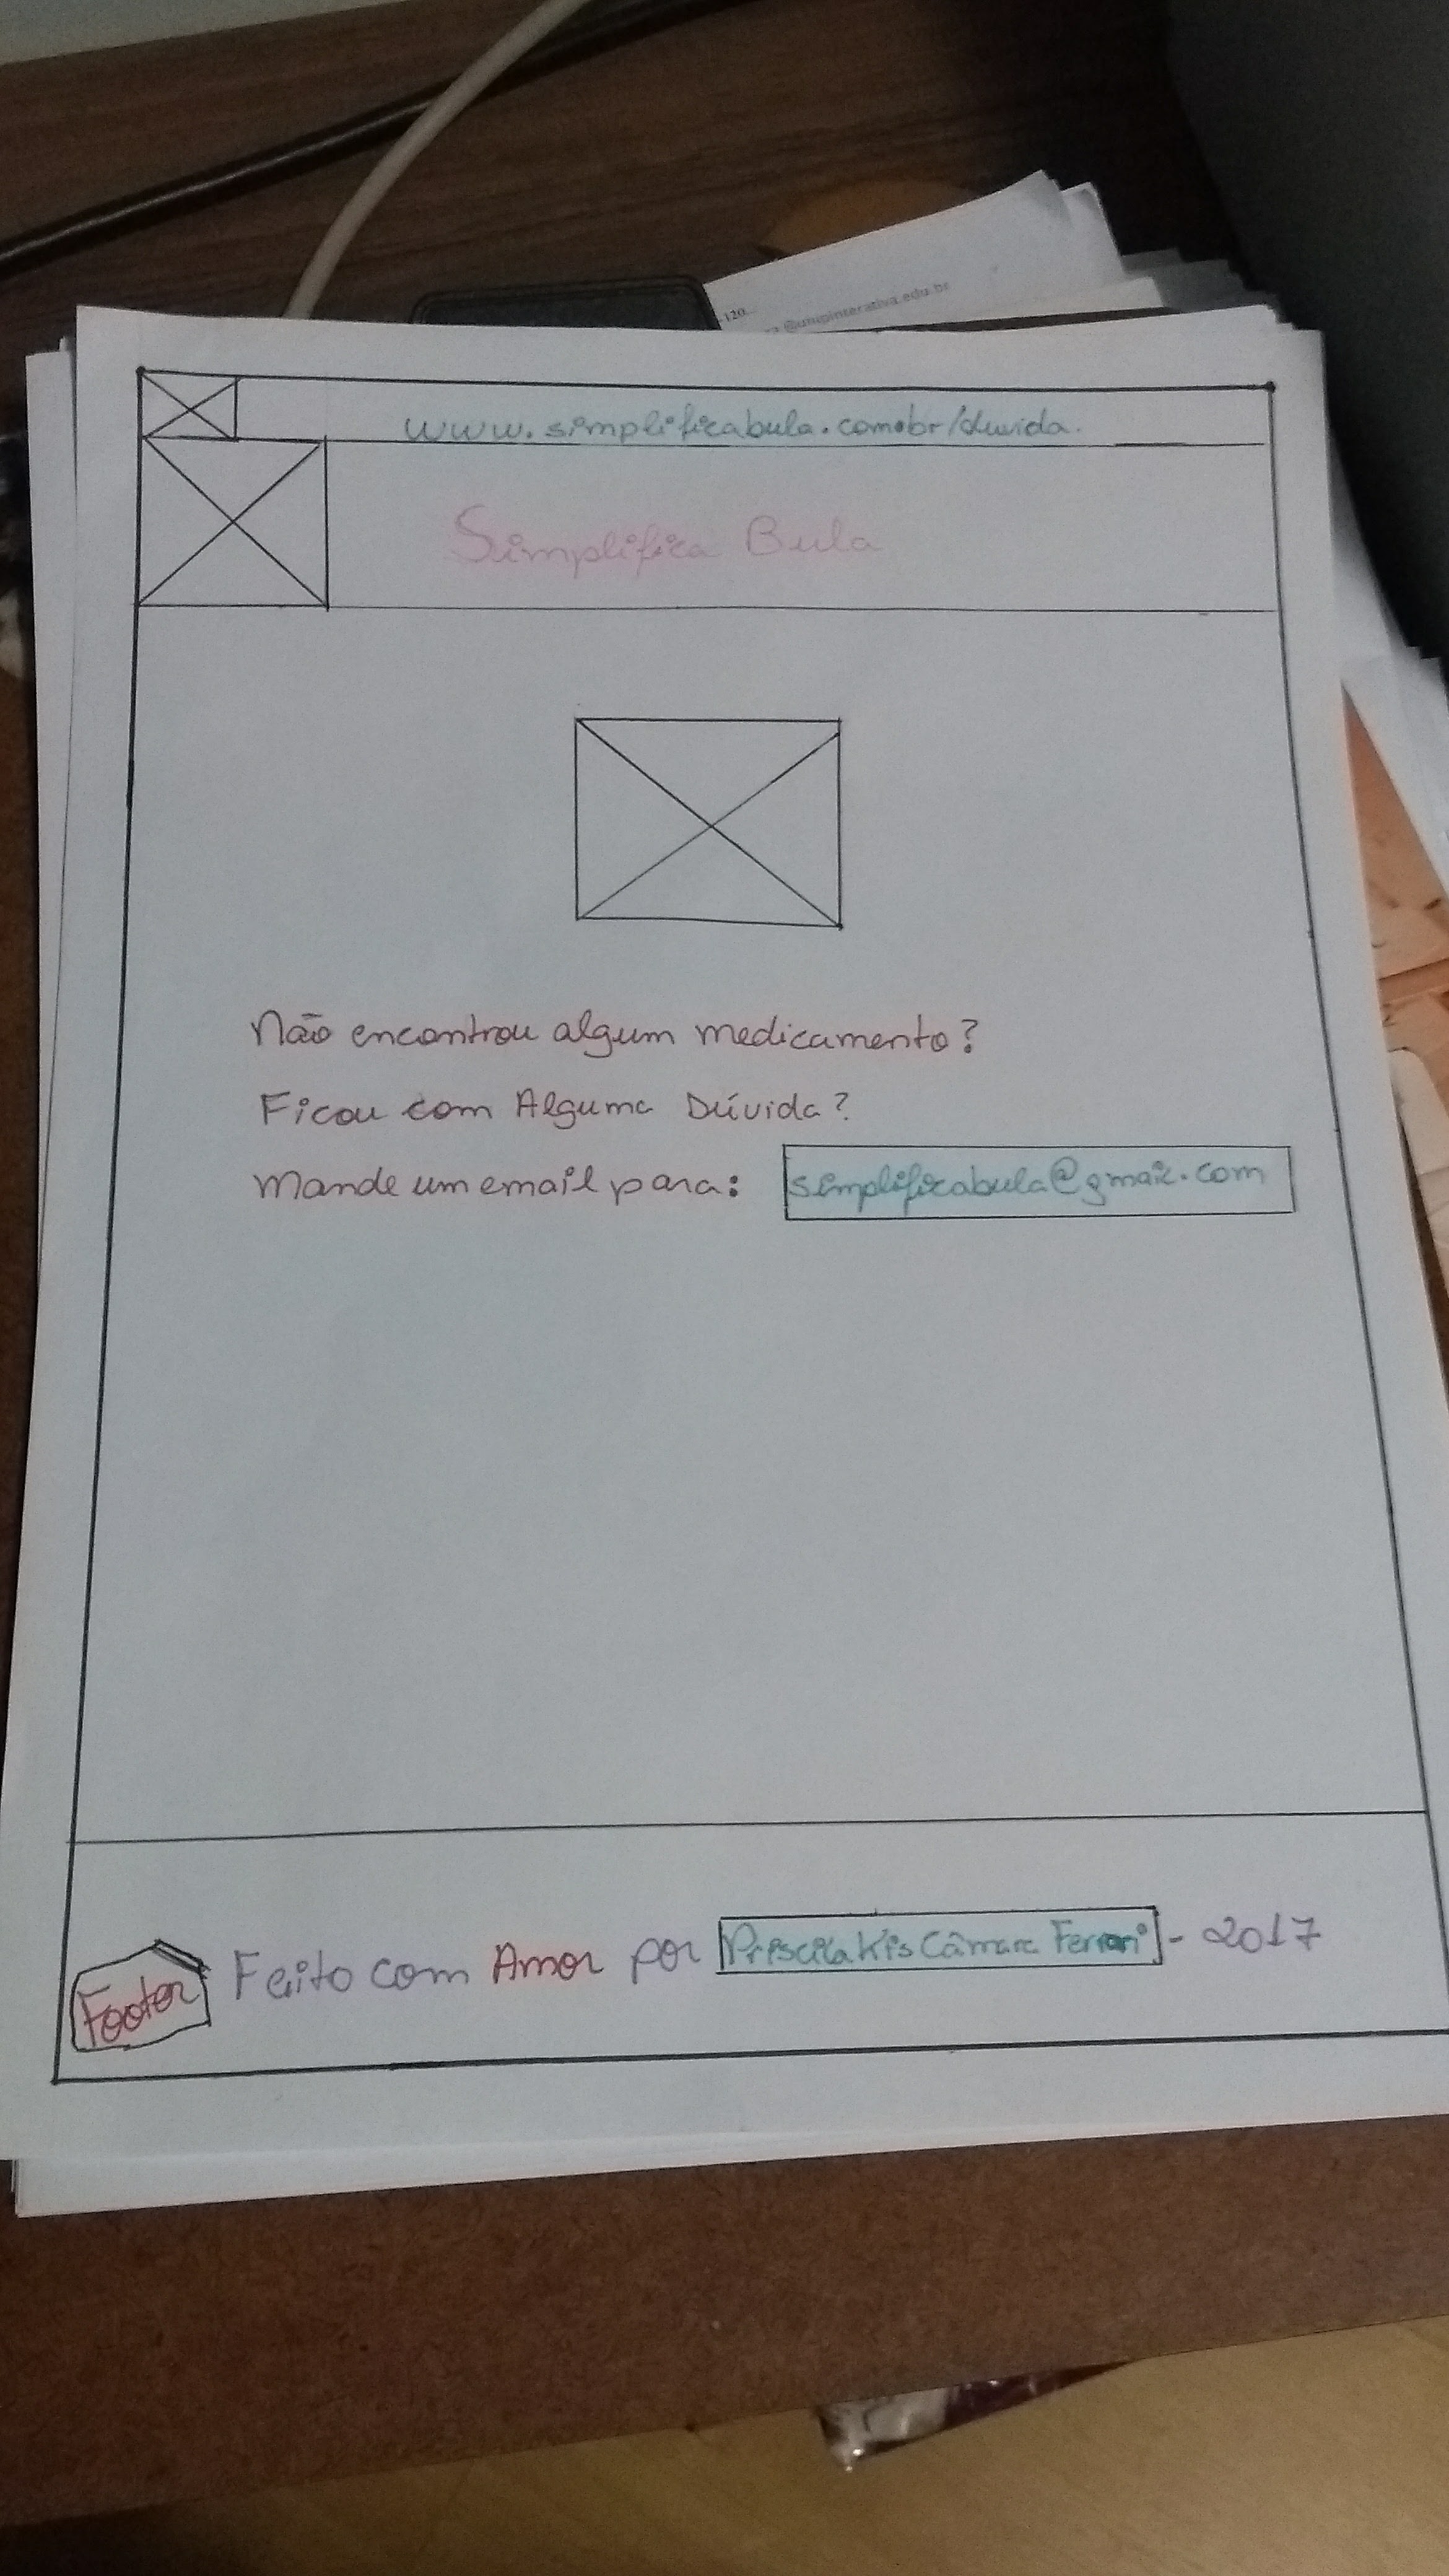 -120...
@unipinterativa.edu.br
www.simplificabula.com.br/duvida.
Simplifica Bula
Não encontrou algum medicamento?
Ficou com Alguma Dúvida?
Mande um email para: simplificabula@gmail.com
Footer Feito com Amor por Priscila Kis Câmara Ferrari - 2017